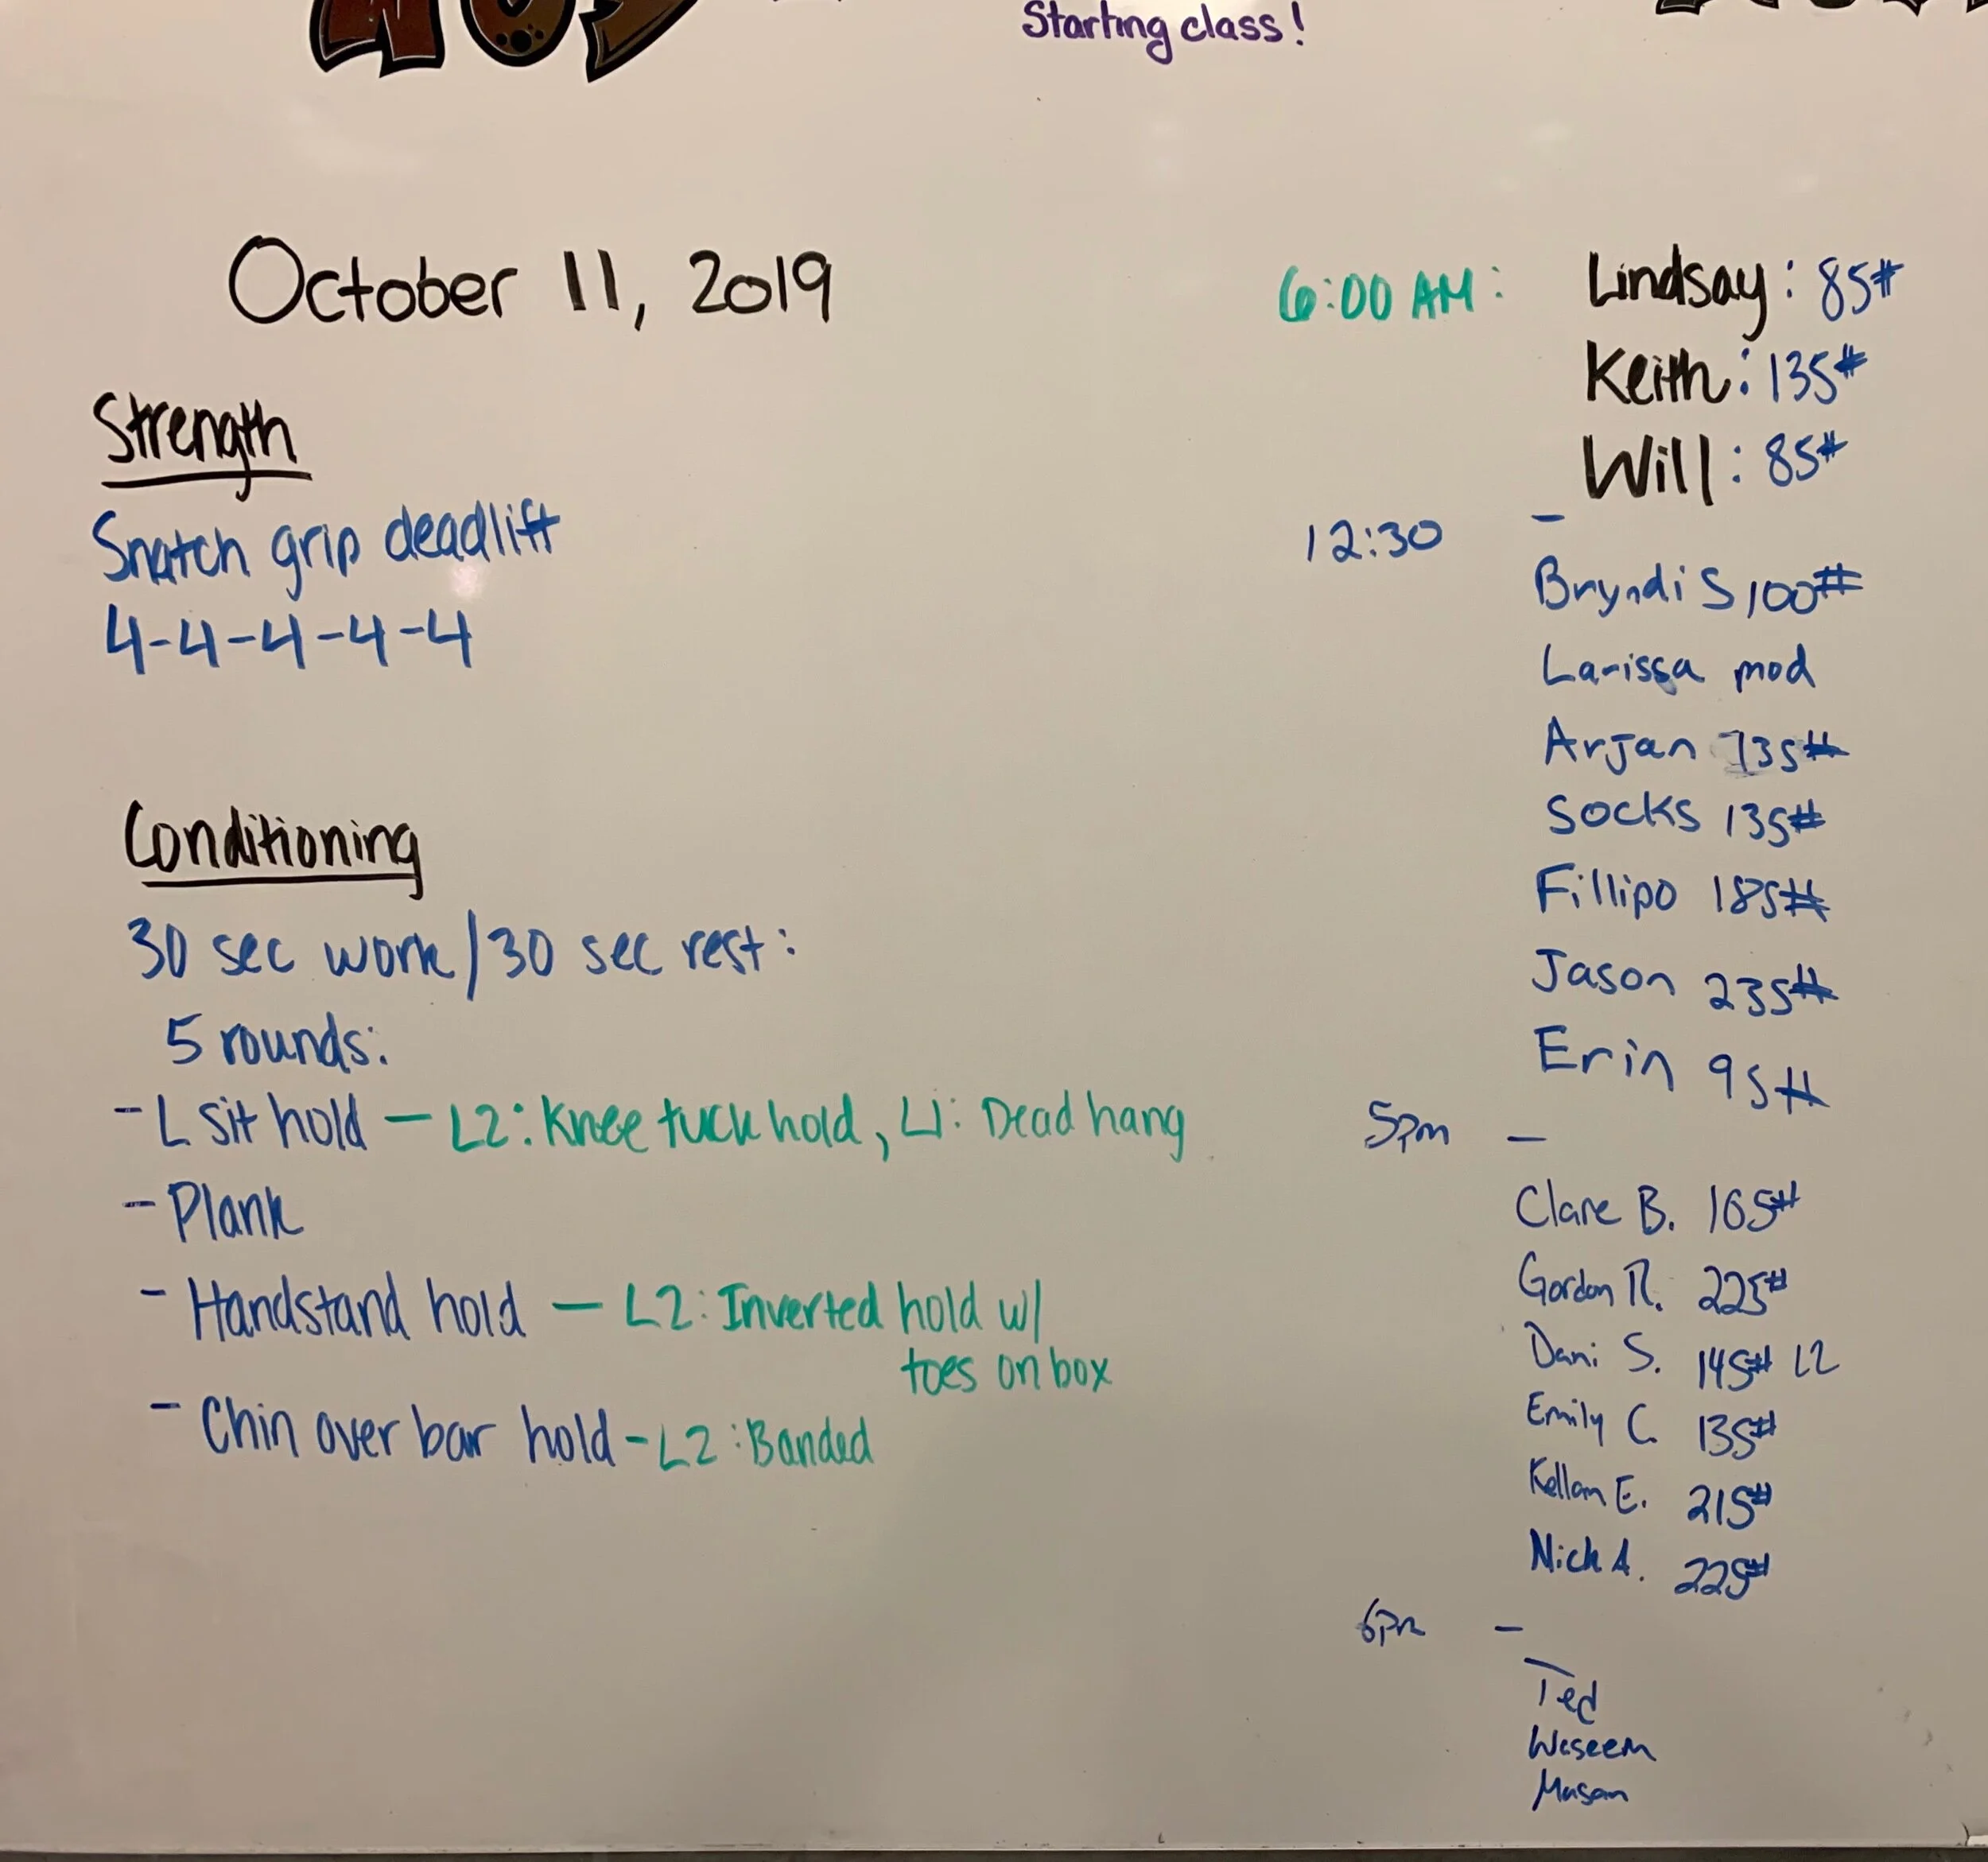 Starting class!
October 11, 2019
Strength
Snatch grip deadlift
4-4-4-4-4
Conditioning
30 sec work/30 sec rest:
5 rounds:
- L sit hold — L2: Knee tuck hold, L1: Dead hang
- Plank
- Handstand hold — L2: Inverted hold w/
toes on box
- Chin over bar hold - L2: Banded
6:00 AM: Lindsay: 85#
Keith: 135#
Will: 85#
12:30 —
Bryndi S 100#
Larissa mod
Arjan 135#
Socks 135#
Fillipo 185#
Jason 235#
Erin 95#
5pm —
Clare B. 165#
Gordon R. 225#
Dani S. 145# L2
Emily C. 135#
Kellan E. 215#
Nick A. 225#
6pm —
Ted
Waseem
Mason